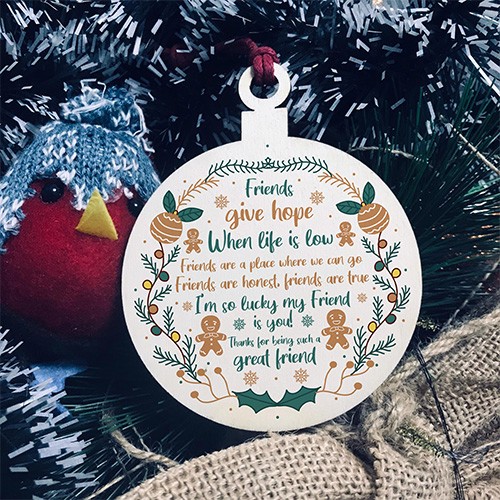 Friends
give hope
When life is low
Friends are a place where we can go
Friends are honest, friends are true
I'm so lucky my Friend
is you!
Thanks for being such a
great friend